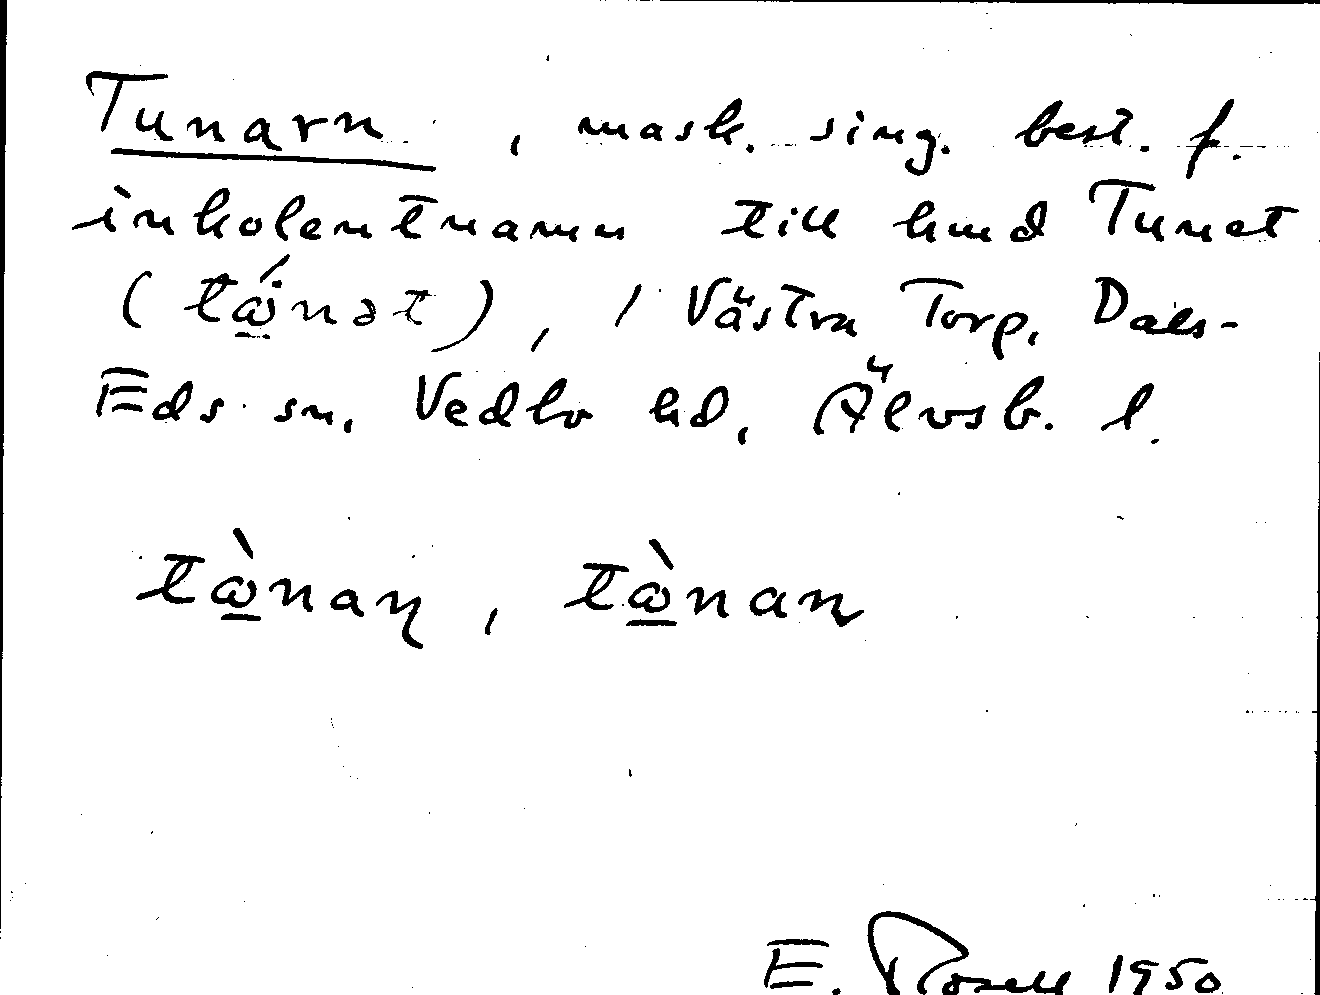 Tunarn, mask. sing. best. f.
inkolentnamn till hmd Tunet
(tώnət), i Västra Torp, Dals-
Eds sn, Vedbo hd, Älvsb. l.
tὼnaɳ, tὼnan
E. Rosell 1950